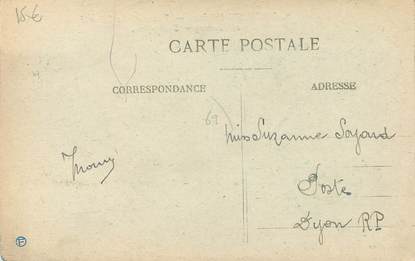 15€
CARTE POSTALE
CORRESPONDANCE
ADRESSE
69
Miss Suzanne Soyard
Poste
Dyon RP